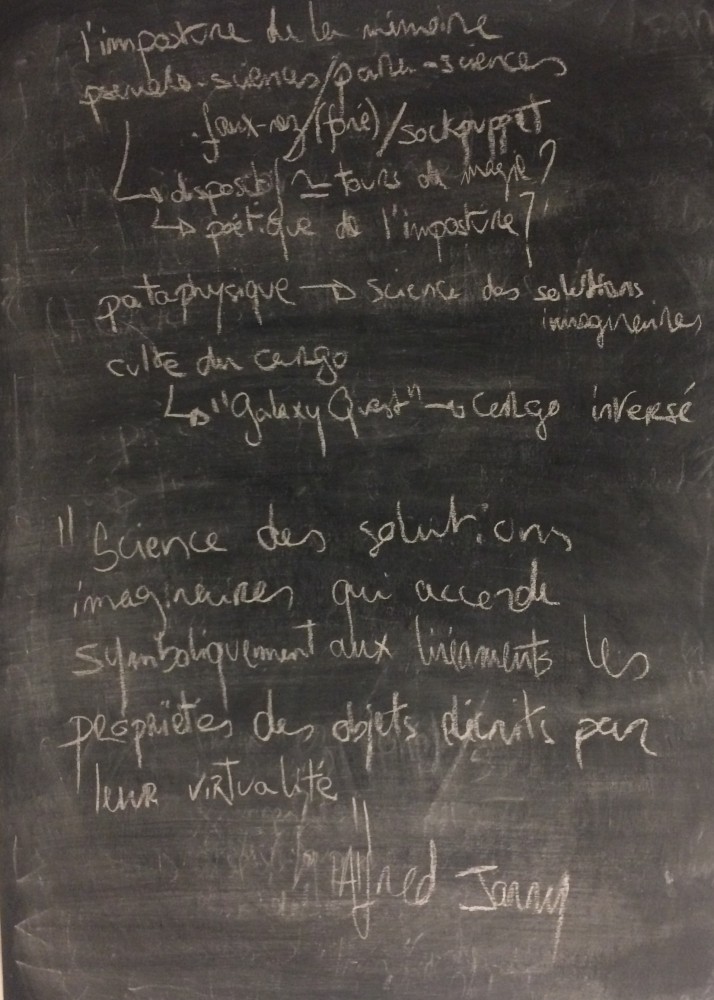 l'imposture de la mémoire
pseudo-sciences/para-sciences
faux-nez/(fné)/sockpuppet
↳ dispositif ≃ tours de magie?
↳ poétique de l'imposture?
pataphysique → science des solutions
imaginaires
culte du cargo
↳ "Galaxy Quest" → cargo inversé
"Science des solutions
imaginaires qui accorde
symboliquement aux linéaments les
propriétés des objets décrits par
leur virtualité"
Alfred Jarry